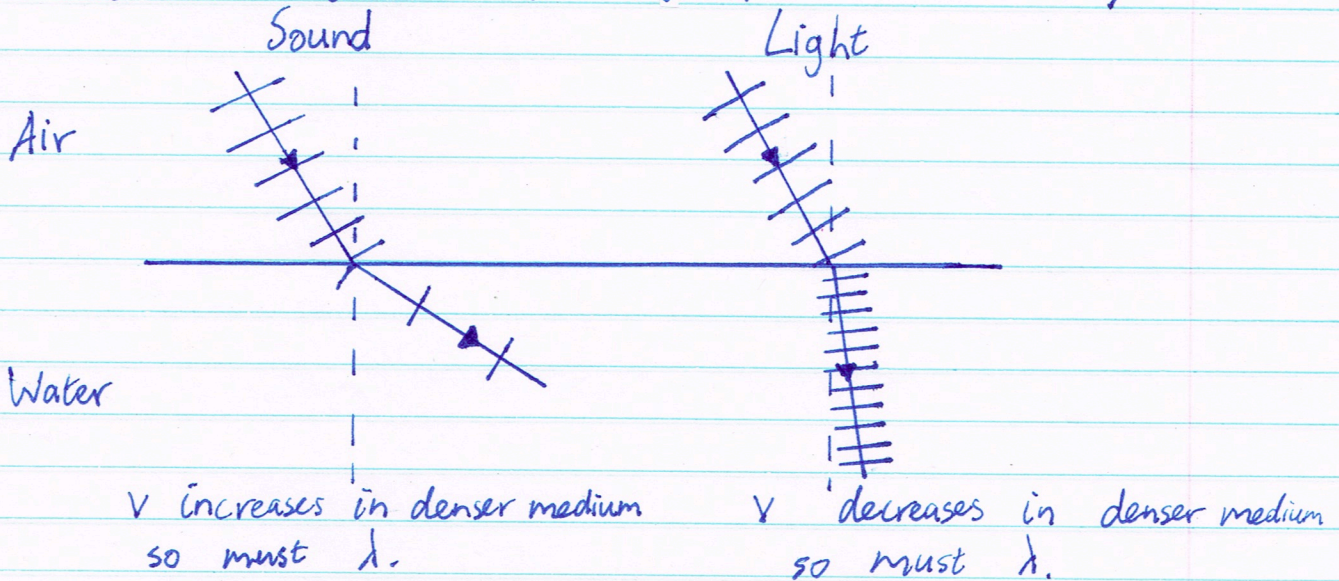 Sound
Light
Air
Water
V increases in denser medium
so must λ.
V decreases in denser medium
so must λ.